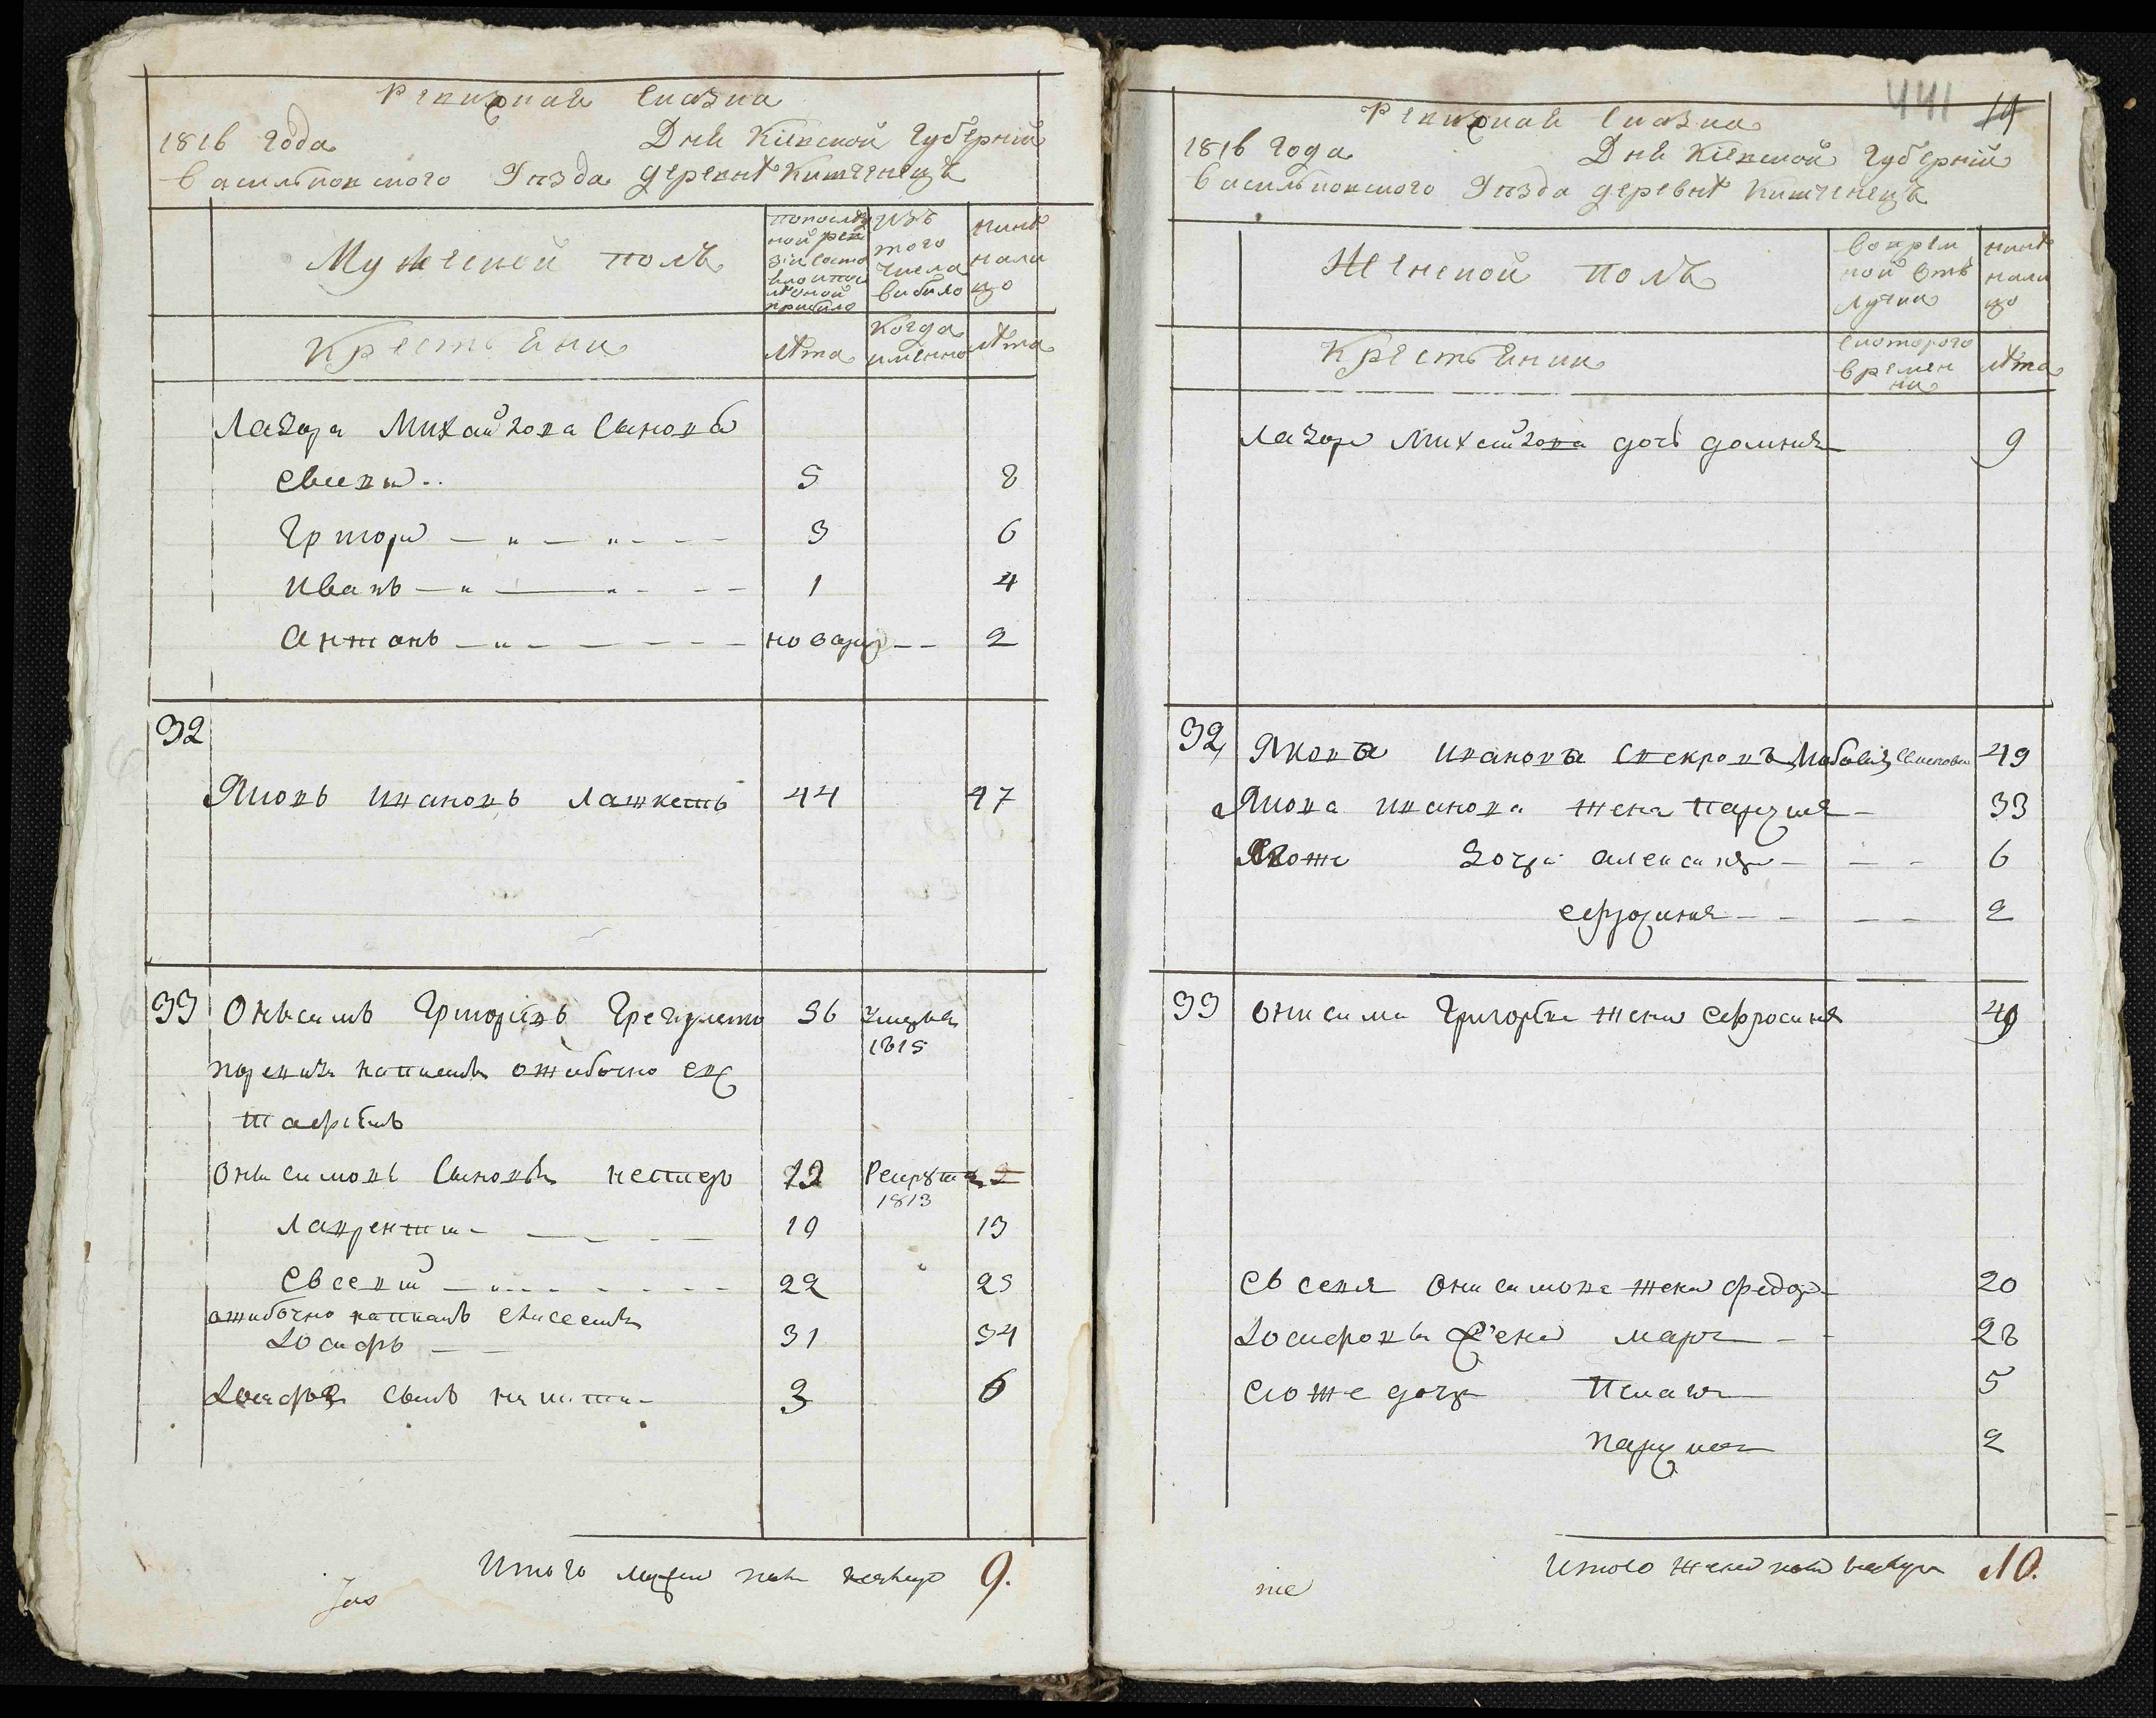 Ревизная Сказка
1816 года Дня Кіевской Губерній
Васильковского Уѣзда деревнѣ Китченецъ
Мужеской полъ
по последней ревизіи состояло и после оной прибыло
изъ того числа выбыло
нинѣ на лицо
Крестьяни
лѣта
Когда именно
лѣта
Лазора Михайлова Сыновья
Евсевій 5 8
Григорій 3 6
Иванъ 1 4
Антонъ новорож 2
32
Яковъ Ивановъ Лашкетъ 44 47
33 Онисимъ Григорьевъ 56 умеръ 1815
по ревизіи написанъ ошибочно Ев
стафіемъ
Онисимовы Сыновья нестеръ 12 Рекрутъ 1813
Лаврентий 10 13
Евсевій 22 25
ошибочно написанъ
Іосифъ 31 34
Іосифа сынъ никита 3 6
Итого мужеска пола налицо 9.
441 19
Ревизная Сказка
1816 года Дня Кіевской Губерній
Васильковского Уѣзда деревнѣ Китченецъ
Женской полъ
во временной отлучки
нинѣ на лицо
Крестьянки
с которого временни
лѣта
Лазора Михайлова дочь домния 9
32 Якова Иванова свекровь 49
Якова Иванова жена Параския 33
Якова дочери александра 6
ефросиния 2
33 Онисима Григорьева жена Ефросиния 49
Евсевия Онисимова жена федора 20
Іосифовы жена мария 28
Его же дочери Пелагия 5
параския 2
Итого женска пола налицо 10.